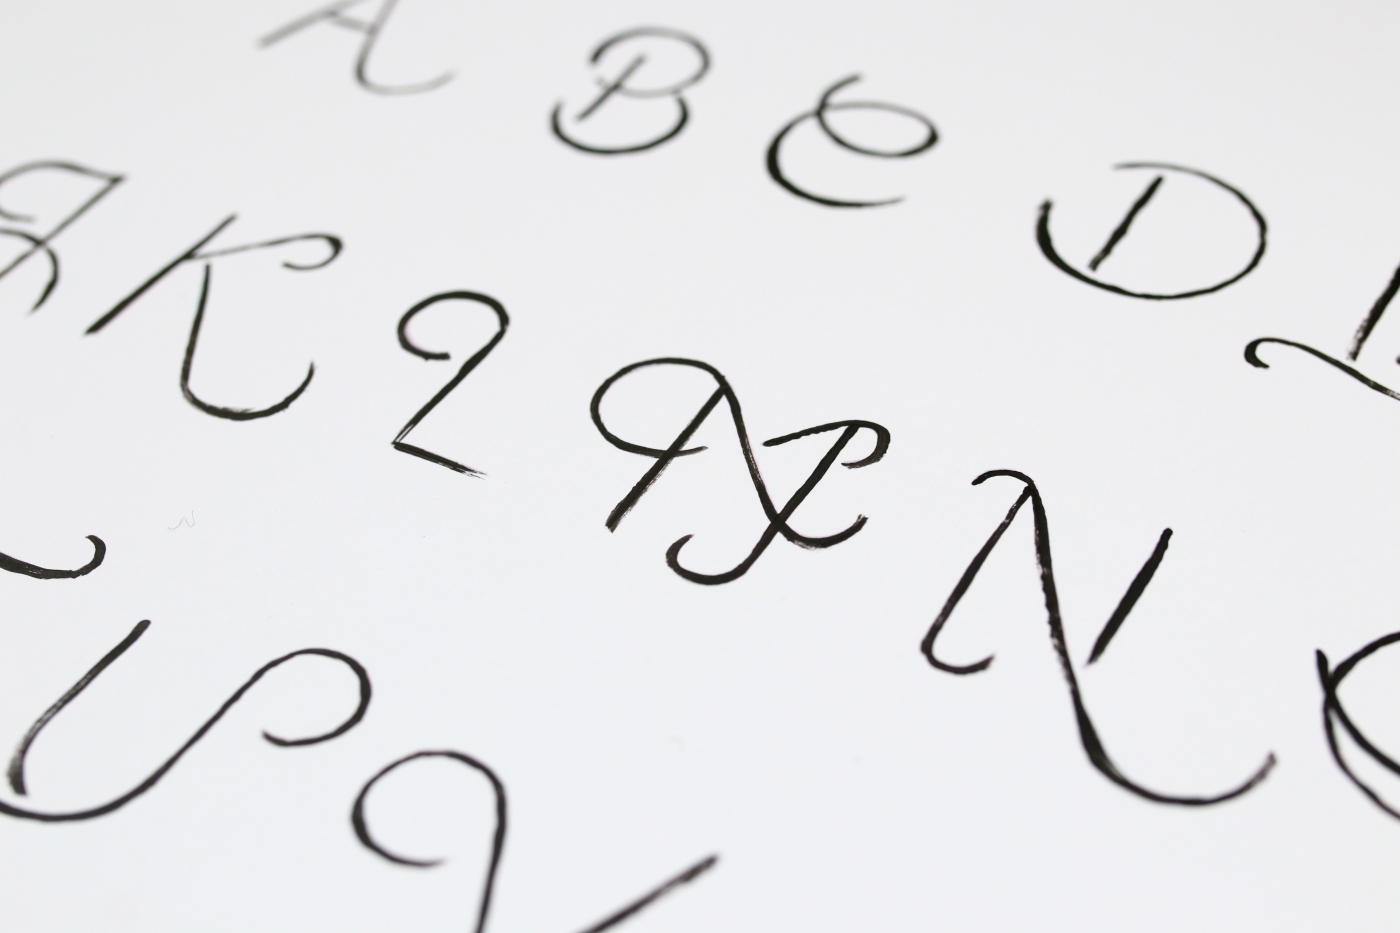 A B C D E
J K L M N O
U V